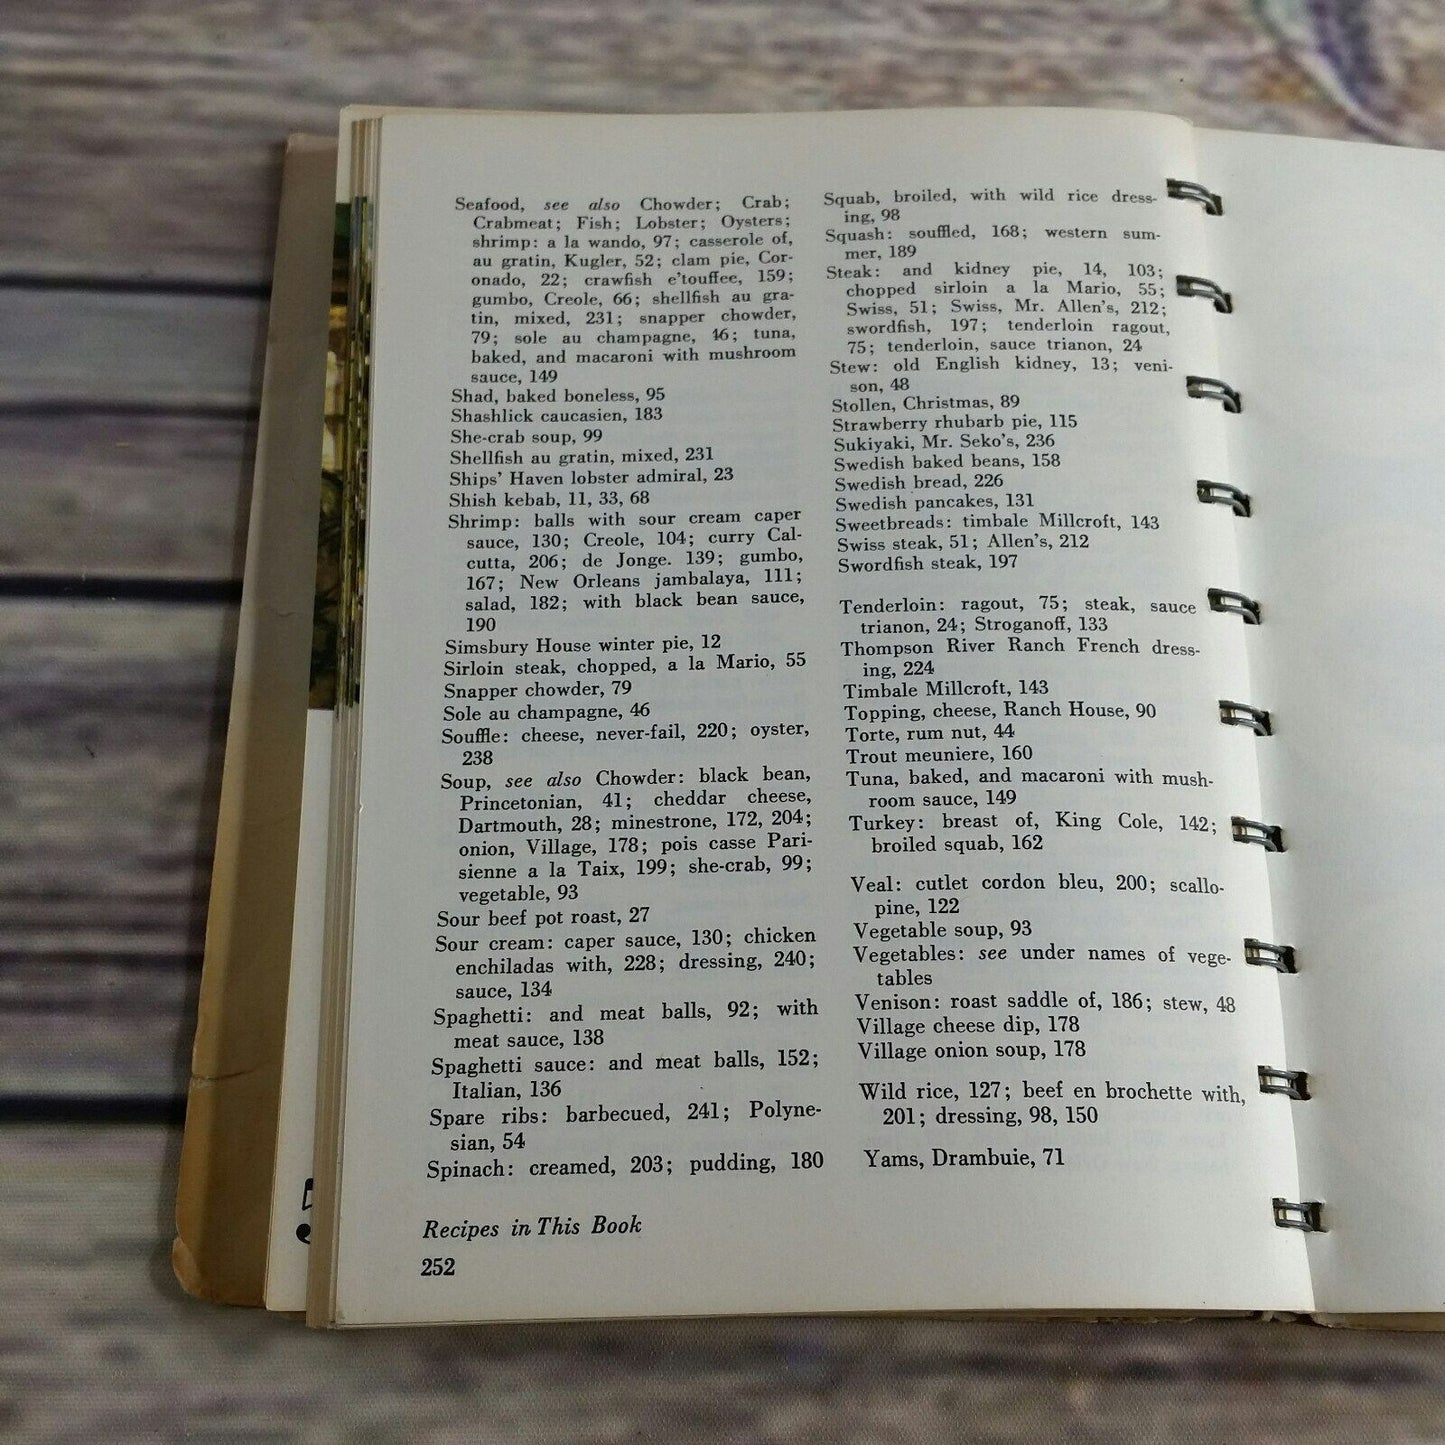 Seafood, see also Chowder; Crab;
Crabmeat; Fish; Lobster; Oysters;
shrimp: a la wando, 97; casserole of,
au gratin, Kugler, 52; clam pie, Cor-
onado, 22; crawfish e'touffee, 159;
gumbo, Creole, 66; shellfish au gra-
tin, mixed, 231; snapper chowder,
79; sole au champagne, 46; tuna,
baked, and macaroni with mushroom
sauce, 149
Shad, baked boneless, 95
Shashlick caucasien, 183
She-crab soup, 99
Shellfish au gratin, mixed, 231
Ships' Haven lobster admiral, 23
Shish kebab, 11, 33, 68
Shrimp: balls with sour cream caper
sauce, 130; Creole, 104; curry Cal-
cutta, 206; de Jonge. 139; gumbo,
167; New Orleans jambalaya, 111;
salad, 182; with black bean sauce,
190
Simsbury House winter pie, 12
Sirloin steak, chopped, a la Mario, 55
Snapper chowder, 79
Sole au champagne, 46
Souffle: cheese, never-fail, 220; oyster,
238
Soup, see also Chowder: black bean,
Princetonian, 41; cheddar cheese,
Dartmouth, 28; minestrone, 172, 204;
onion, Village, 178; pois casse Pari-
sienne a la Taix, 199; she-crab, 99;
vegetable, 93
Sour beef pot roast, 27
Sour cream: caper sauce, 130; chicken
enchiladas with, 228; dressing, 240;
sauce, 134
Spaghetti: and meat balls, 92; with
meat sauce, 138
Spaghetti sauce: and meat balls, 152;
Italian, 136
Spare ribs: barbecued, 241; Polyne-
sian, 54
Spinach: creamed, 203; pudding, 180
Squab, broiled, with wild rice dress-
ing, 98
Squash: souffled, 168; western sum-
mer, 189
Steak: and kidney pie, 14, 103;
chopped sirloin a la Mario, 55;
Swiss, 51; Swiss, Mr. Allen's, 212;
swordfish, 197; tenderloin ragout,
75; tenderloin, sauce trianon, 24
Stew: old English kidney, 13; veni-
son, 48
Stollen, Christmas, 89
Strawberry rhubarb pie, 115
Sukiyaki, Mr. Seko's, 236
Swedish baked beans, 158
Swedish bread, 226
Swedish pancakes, 131
Sweetbreads: timbale Millcroft, 143
Swiss steak, 51; Allen's, 212
Swordfish steak, 197
Tenderloin: ragout, 75; steak, sauce
trianon, 24; Stroganoff, 133
Thompson River Ranch French dress-
ing, 224
Timbale Millcroft, 143
Topping, cheese, Ranch House, 90
Torte, rum nut, 44
Trout meuniere, 160
Tuna, baked, and macaroni with mush-
room sauce, 149
Turkey: breast of, King Cole, 142;
broiled squab, 162
Veal: cutlet cordon bleu, 200; scallo-
pine, 122
Vegetable soup, 93
Vegetables: see under names of vege-
tables
Venison: roast saddle of, 186; stew, 48
Village cheese dip, 178
Village onion soup, 178
Wild rice, 127; beef en brochette with,
201; dressing, 98, 150
Yams, Drambuie, 71
Recipes in This Book
252